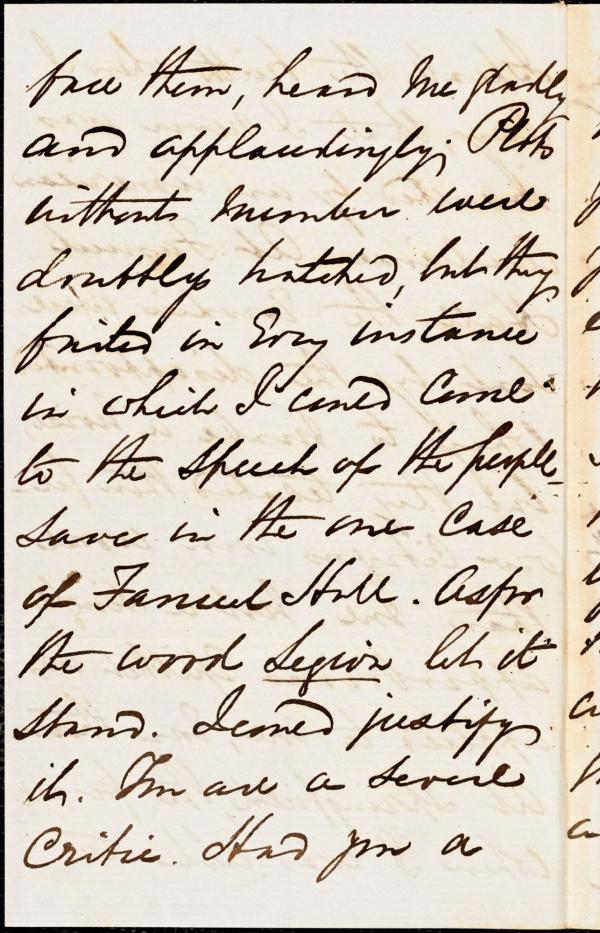 face them, heard me gladly
and applaudingly; Plots
without number were
doubtly hatched, but they
failed in Every instance
in which I coud Come
to the Speech of the people
Save in the one Case
of Fanueil Hall. As for
the word Legion let it
Stand. I coud justify
it. You are a severe
Critic. Had you a